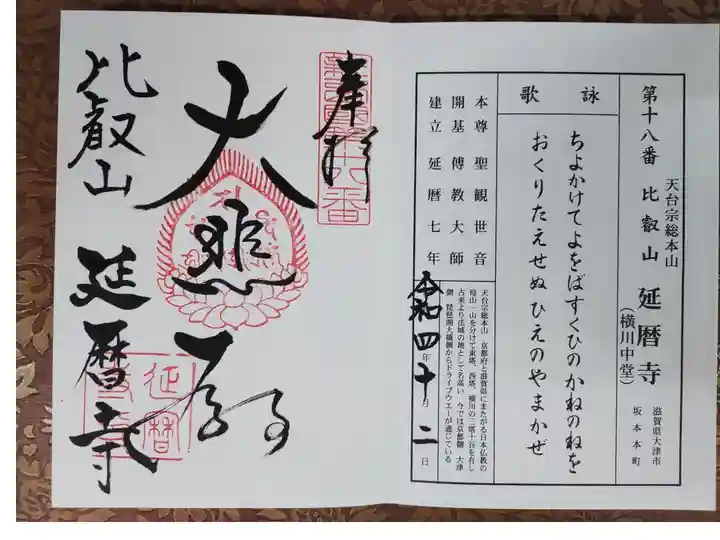 天台宗総本山
第十八番 比叡山 延暦寺
(横川中堂)
滋賀県大津市
坂本本町
詠歌
ちよかけてよをばすくひのかねのねを
おくりたえせぬひえのやまかぜ
本尊 聖観世音
開基 傳教大師
建立 延暦七年
天台宗総本山 京都府と滋賀県にまたがる日本仏教の
母山 一山を分けて東塔、西塔、横川の三塔十谷を有し
古来より法城の地として名高い 今では京都側 大津
側 琵琶湖大橋側からドライブウエーが通じている
令和四年十月二日
奉拝
大悲殿
比叡山 延暦寺